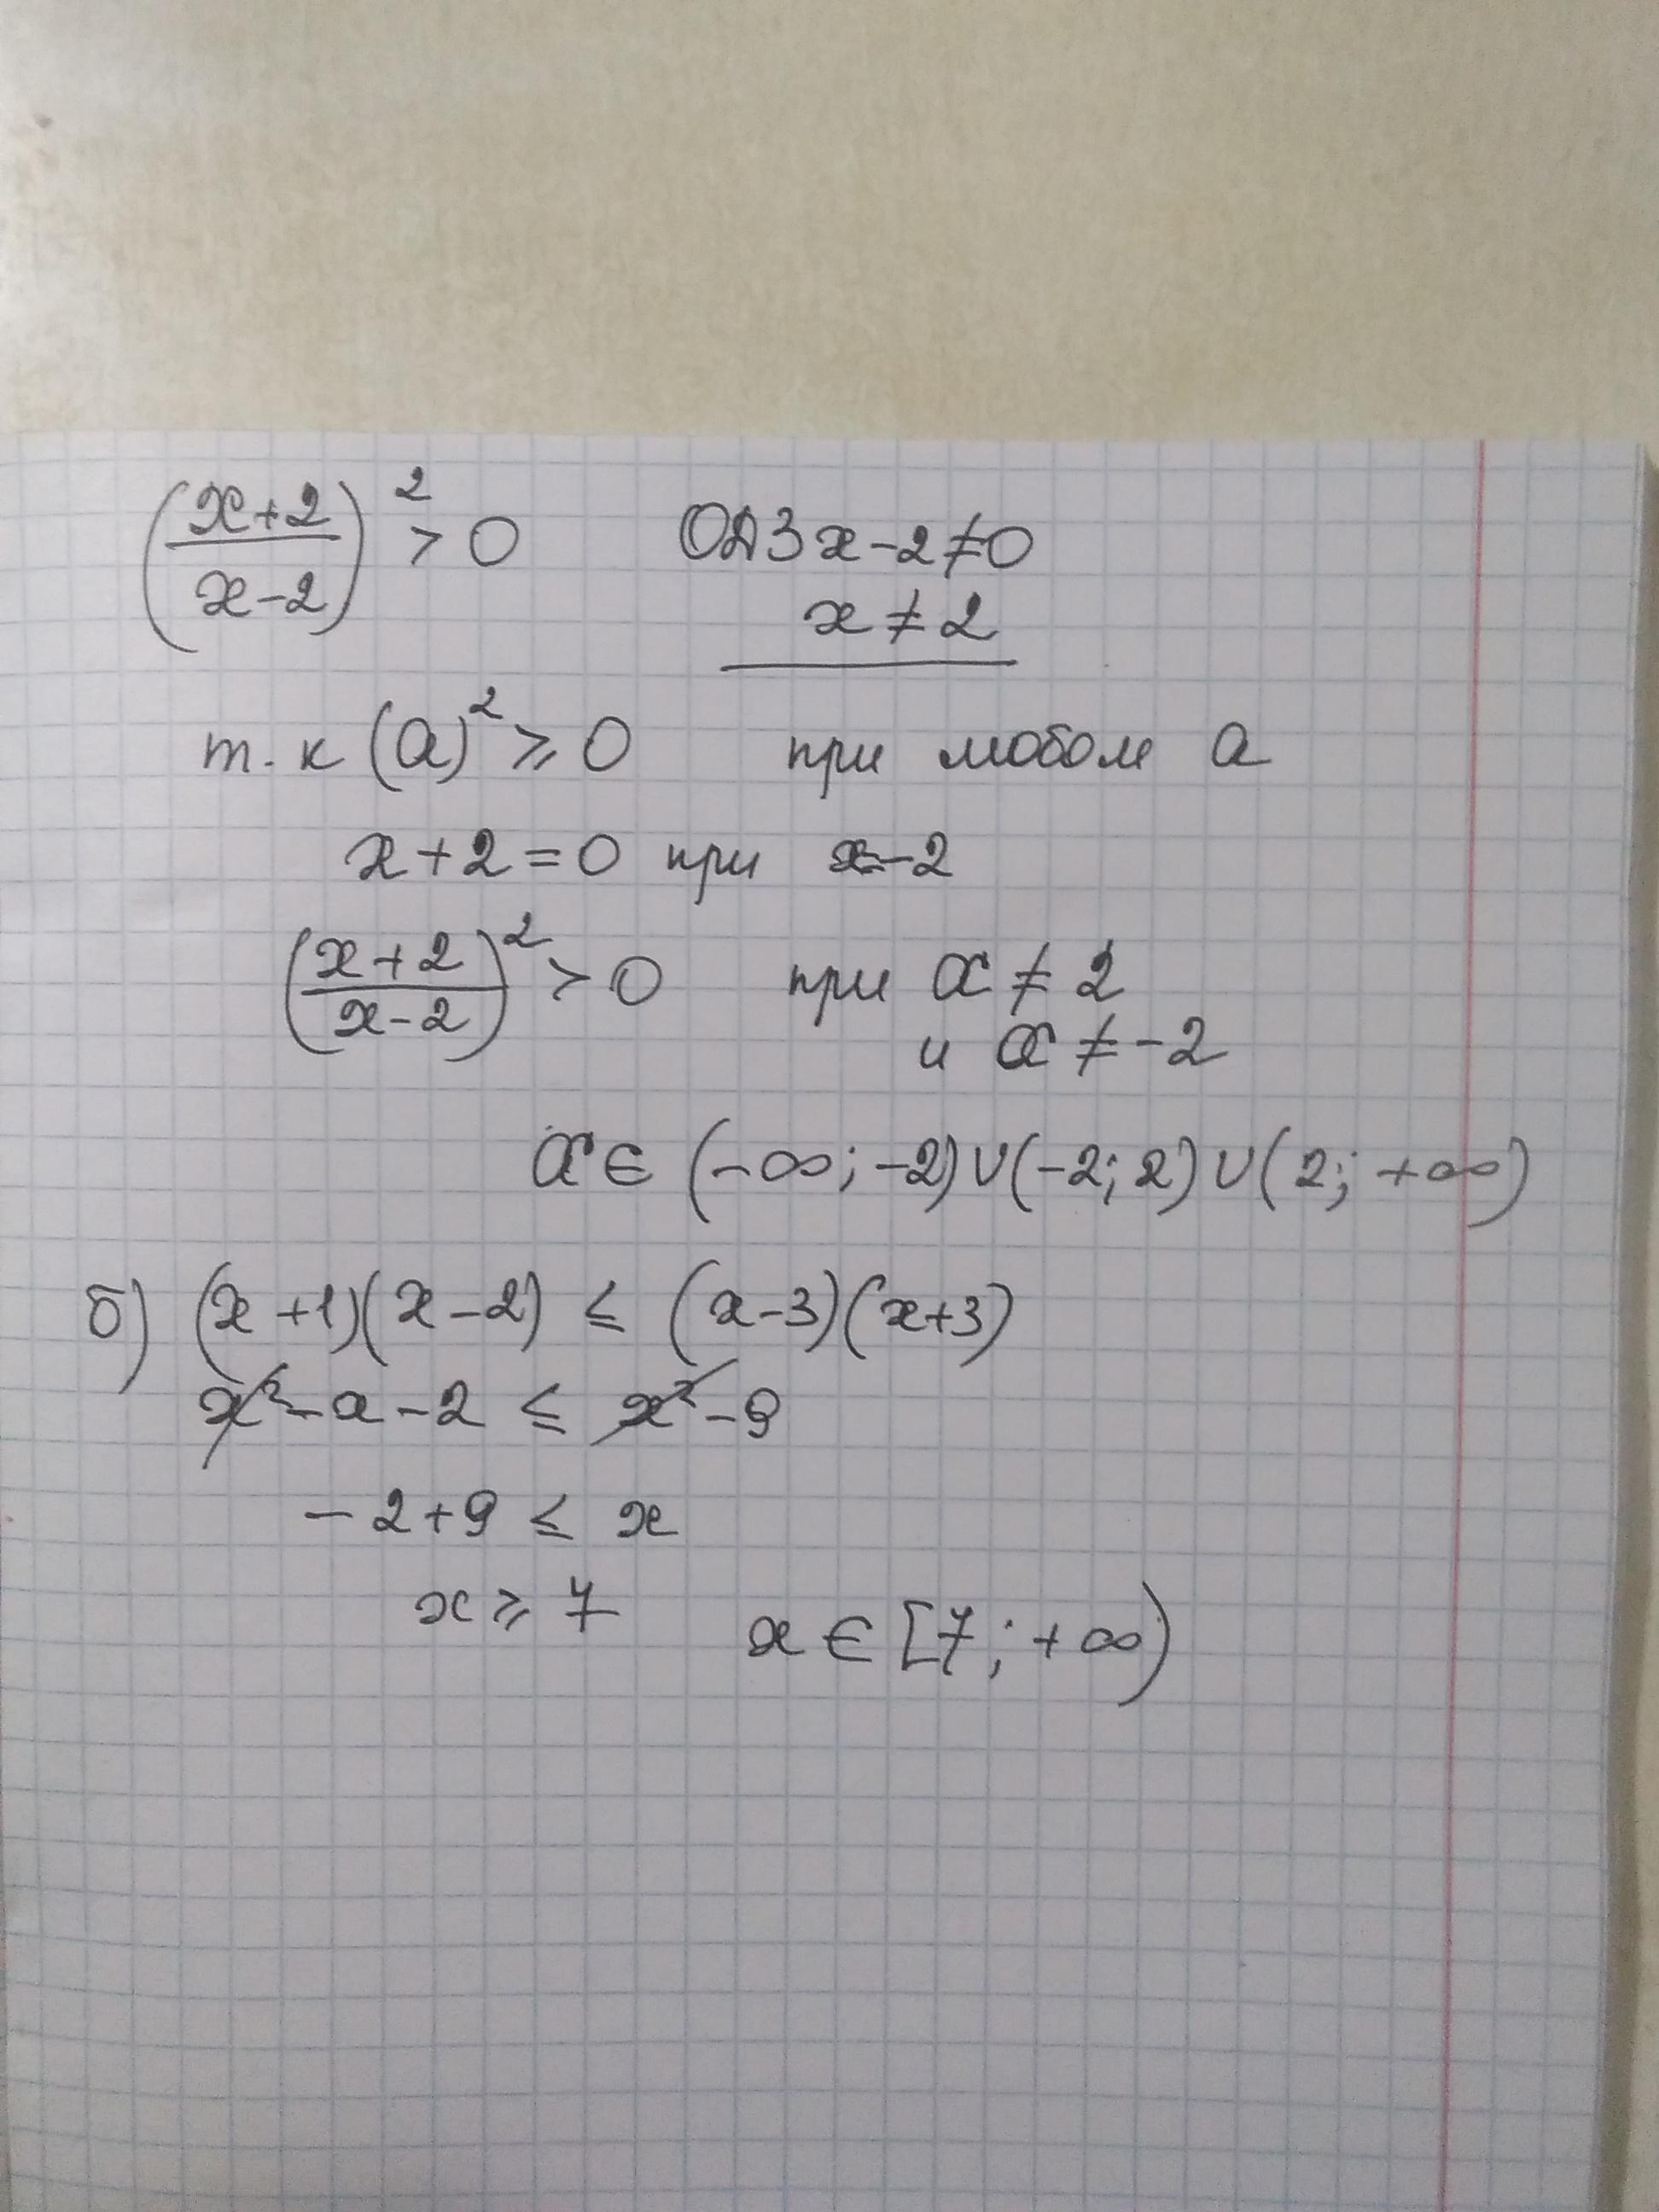 (x+2 / x-2)² > 0 ОДЗ x-2≠0
x≠2
т.к (a)² ⩾ 0 при любом a
x+2=0 при x=-2
(x+2 / x-2)² > 0 при x≠2
и x≠-2
x∈(-∞;-2)∪(-2;2)∪(2;+∞)
б) (x+1)(x-2) ≤ (x-3)(x+3)
x²-x-2 ≤ x²-9
-2+9 ≤ x
x ⩾ 7 x∈[7;+∞)